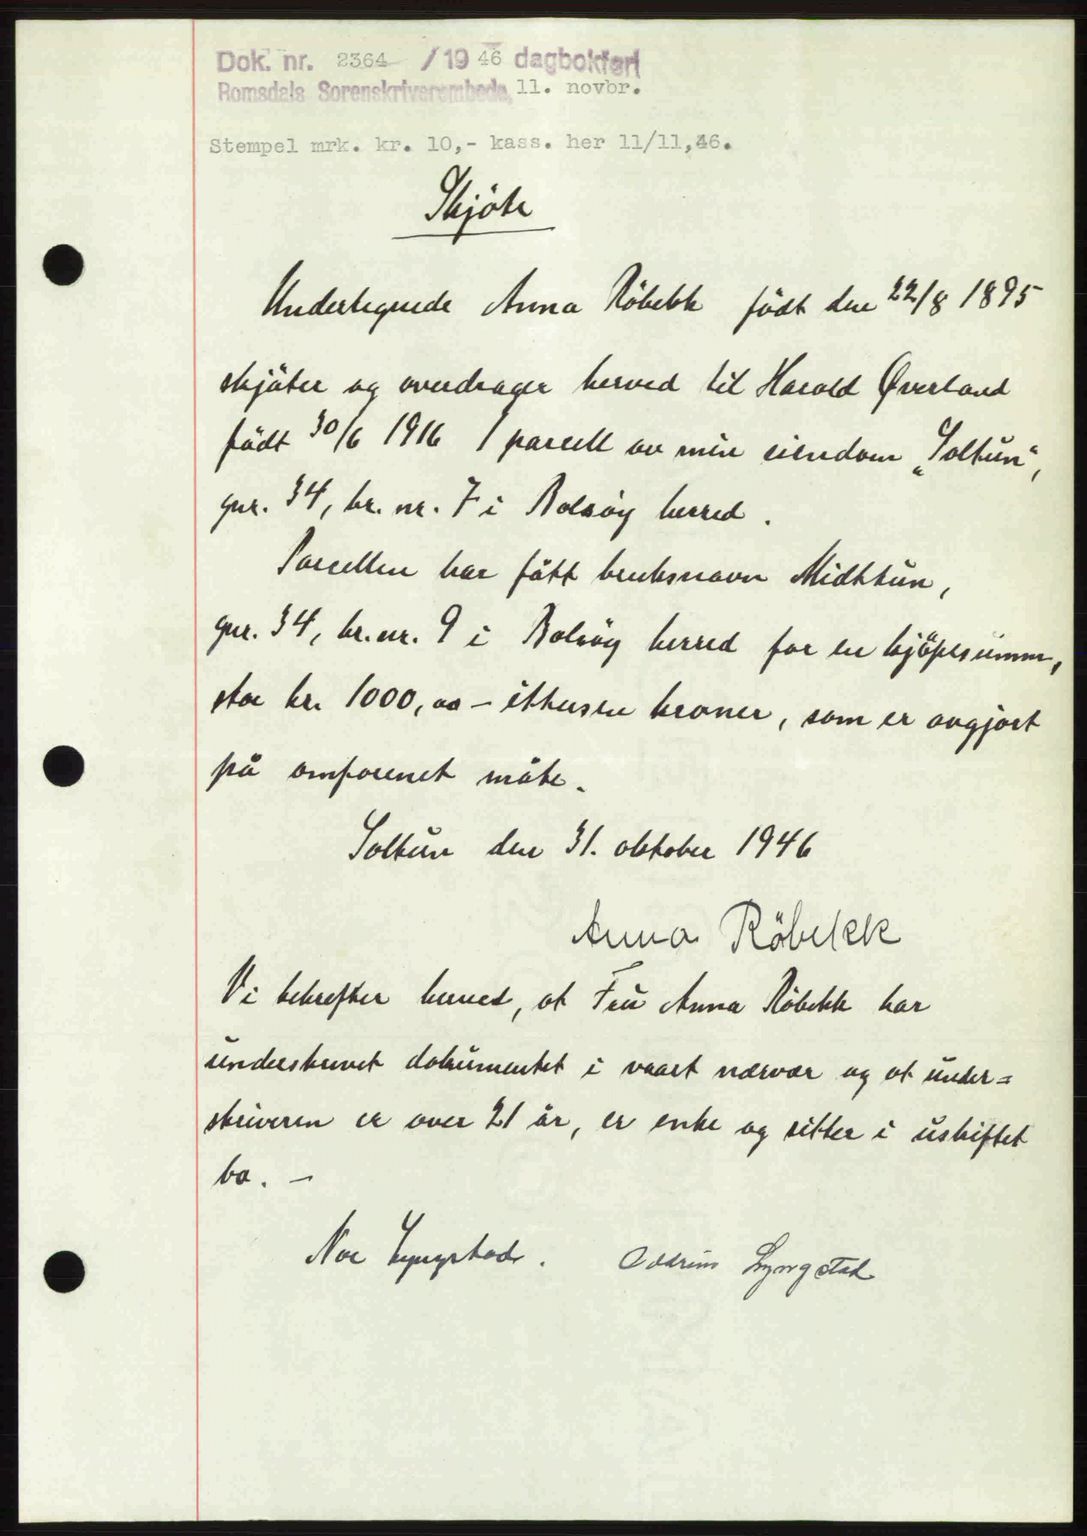 Dok. nr. 2364 / 1946 dagbokført
Romsdals Sorenskriverembede, 11. novbr.
Stempel mrk. kr. 10,- kass. her 11/11,46.
Skjöte
Undertegnede Anna Röbekk födt den 22/8 1895
skjöter og overdrager herved til Harald Øverland
födt 30/6 1916 1 parsell av min eiendom „Soltun“,
gnr. 34, br. nr. 7 i Bolsöy herred.
Parsellen har fått bruksnavn Midttun,
gnr. 34, br. nr. 9 i Bolsöy herred for en kjöpesumm,
stor kr. 1000,00 – ittusen kroner, som er avgjort
på omforenet måte.
Soltun den 31. oktober 1946
Anna Röbekk
Vi bekrefter herved, at Fru Anna Röbekk har
underskrevet dokumentet i vaart nærvær og at under=
skriveren er over 21 år, er enke og sitter i uskiftet
bo. –
Lyngstad. Oddrun Lyngstad